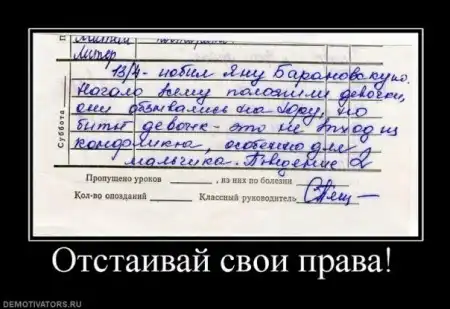 Литер
13/4 - побил Яну Барановскую.
Начало всему положили девочки,
они обзывались на дору, но
бить девочек - это не выход из
конфликта, особенно для
мальчика. Поведение 2
Суббота
Пропущено уроков ______, из них по болезни ______
Кол-во опозданий ______ Классный руководитель
Отстаивай свои права!
DEMOTIVATORS.RU